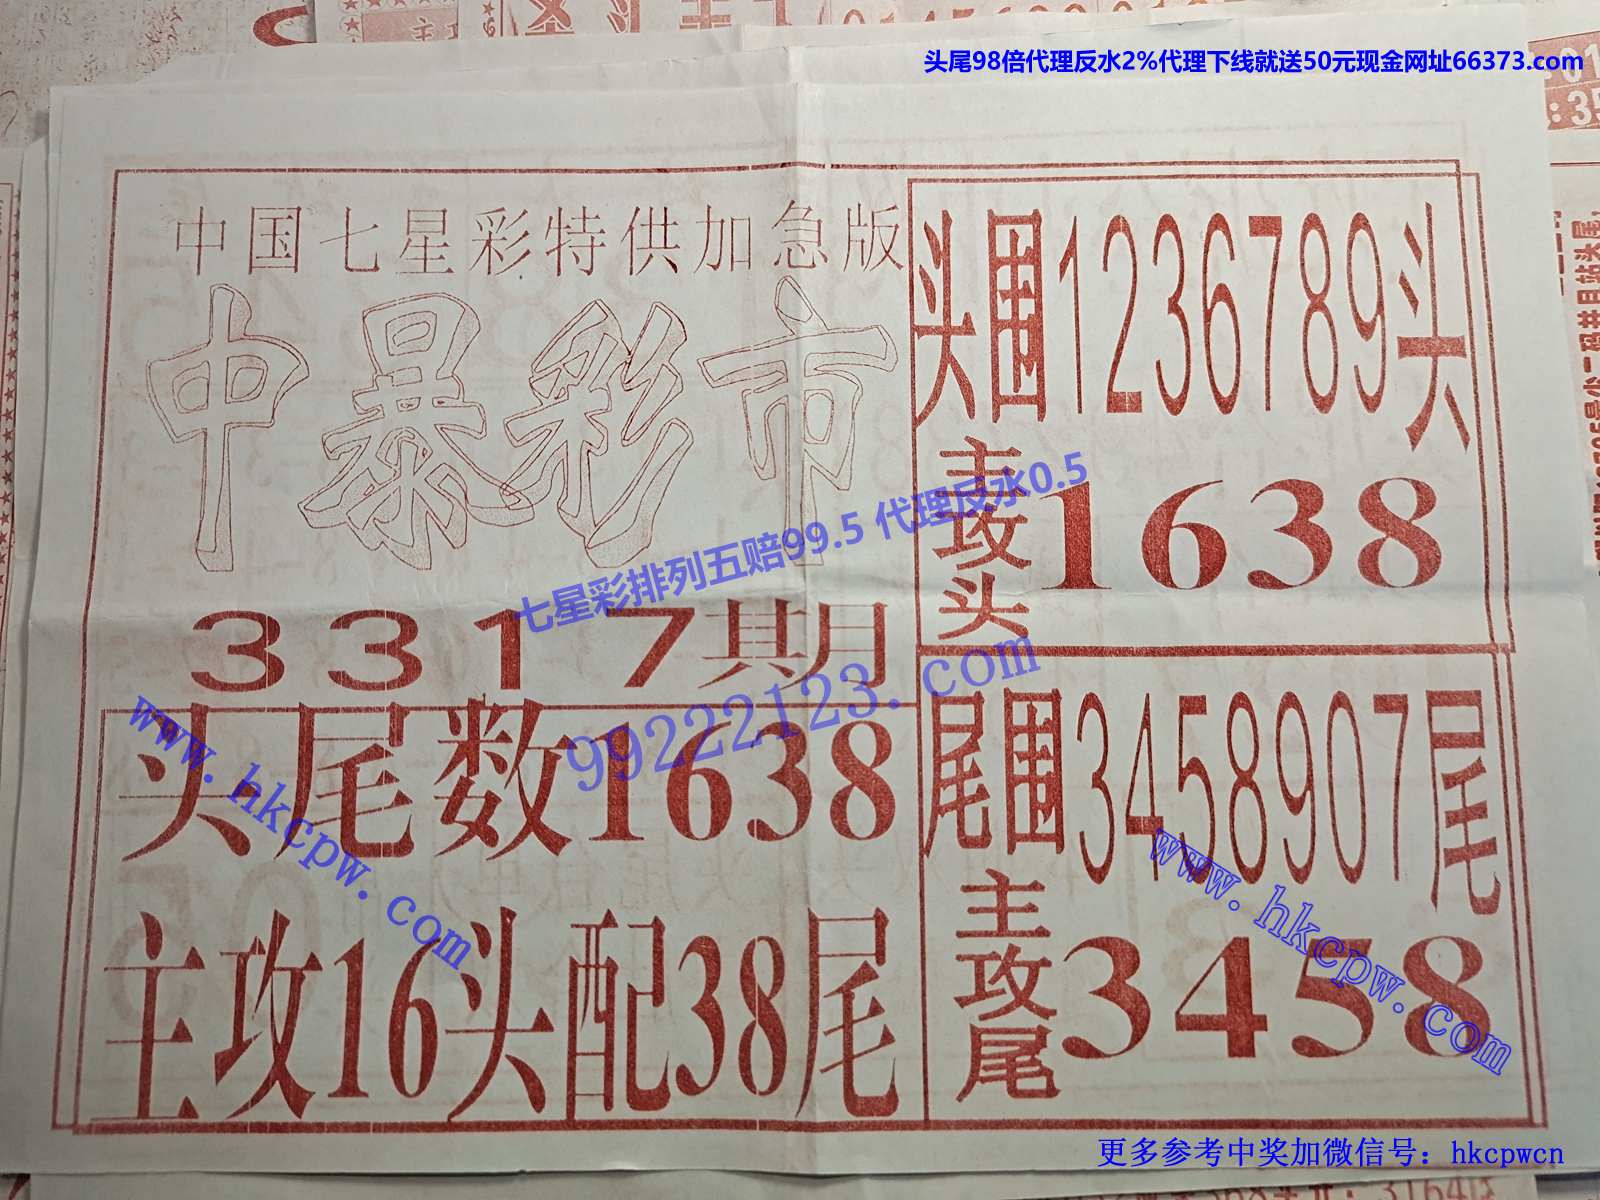 头尾98倍代理反水2%代理下线就送50元现金网址66373.com
中国七星彩特供加急版
中暴彩市
3317期
头尾数1638
主攻16头配38尾
头围1236789头
主攻头1638
尾围3458907尾
主攻尾3458
七星彩排列五赔99.5 代理反水0.5
99222123.com
www.hkcpw.com
www.hkcpw.com
更多参考中奖加微信号：hkcpwcn